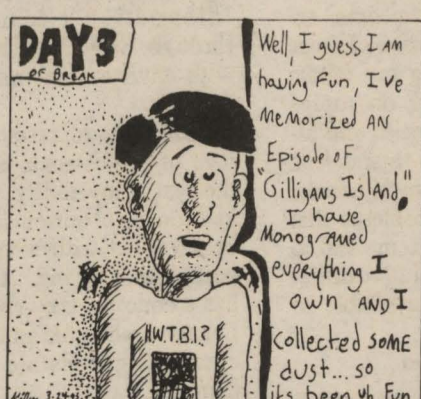 DAY 3
OF BREAK
Well, I guess I AM
having Fun, I've
Memorized AN
Episode of
"Gilligans Island."
I have
Monogramed
everything I
own AND I
collected SOME
dust... so
its been uh Fun
H.W.T.B.I?
3-24-